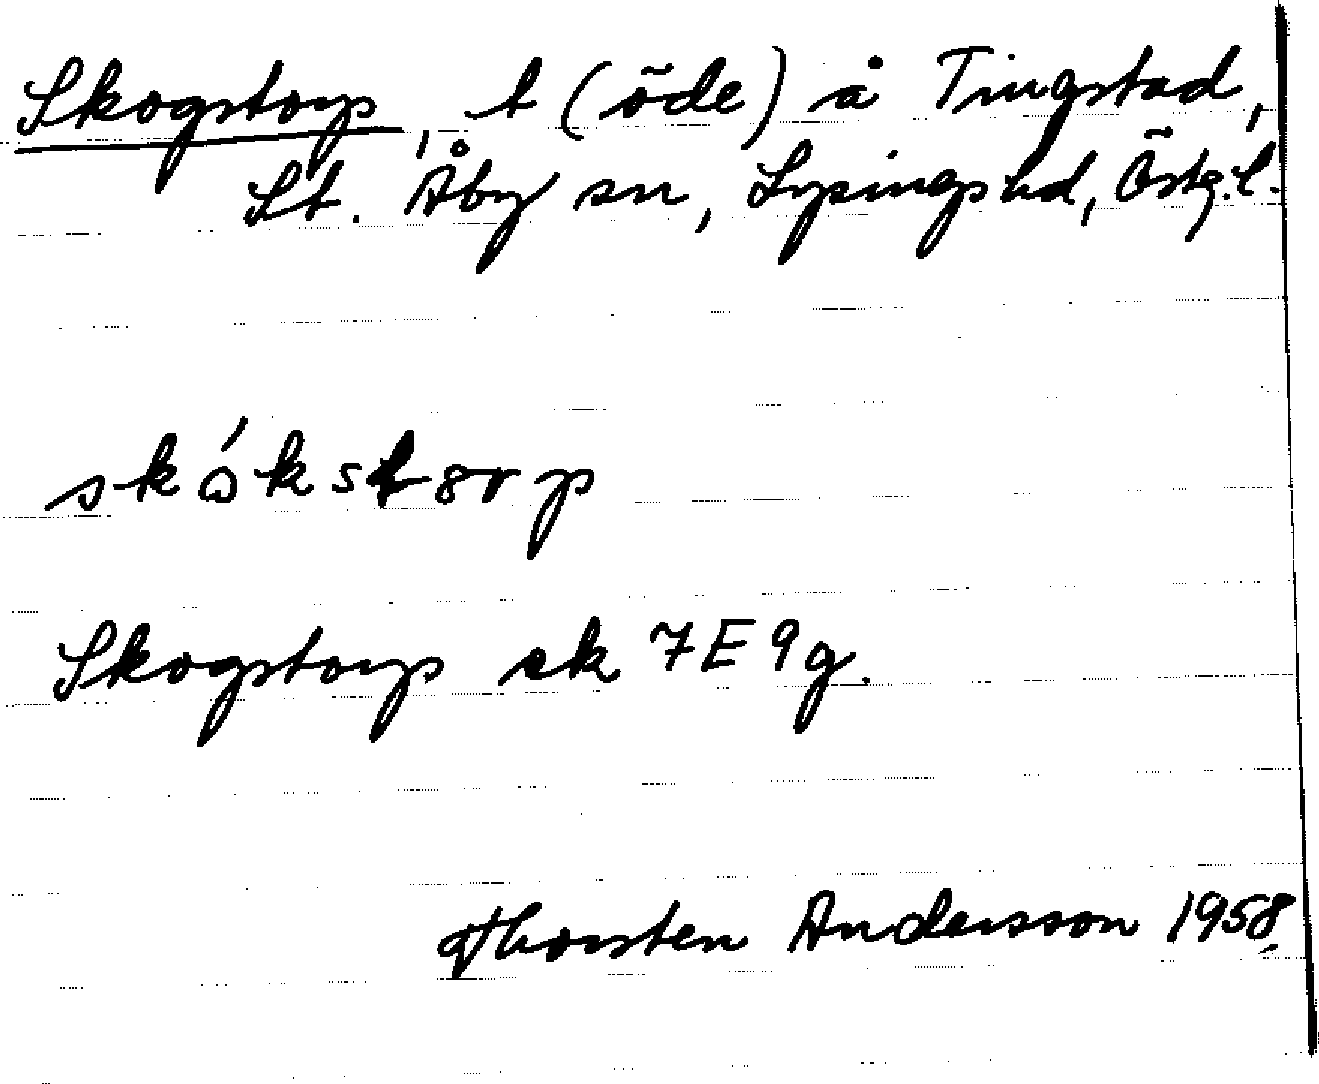 Skogstorp, t (öde) å Tingstad,
St. Åby sn, Lysings hd, Östg. l.
skókst8rp
Skogstorp ek 7E9g.
Thorsten Andersson 1958